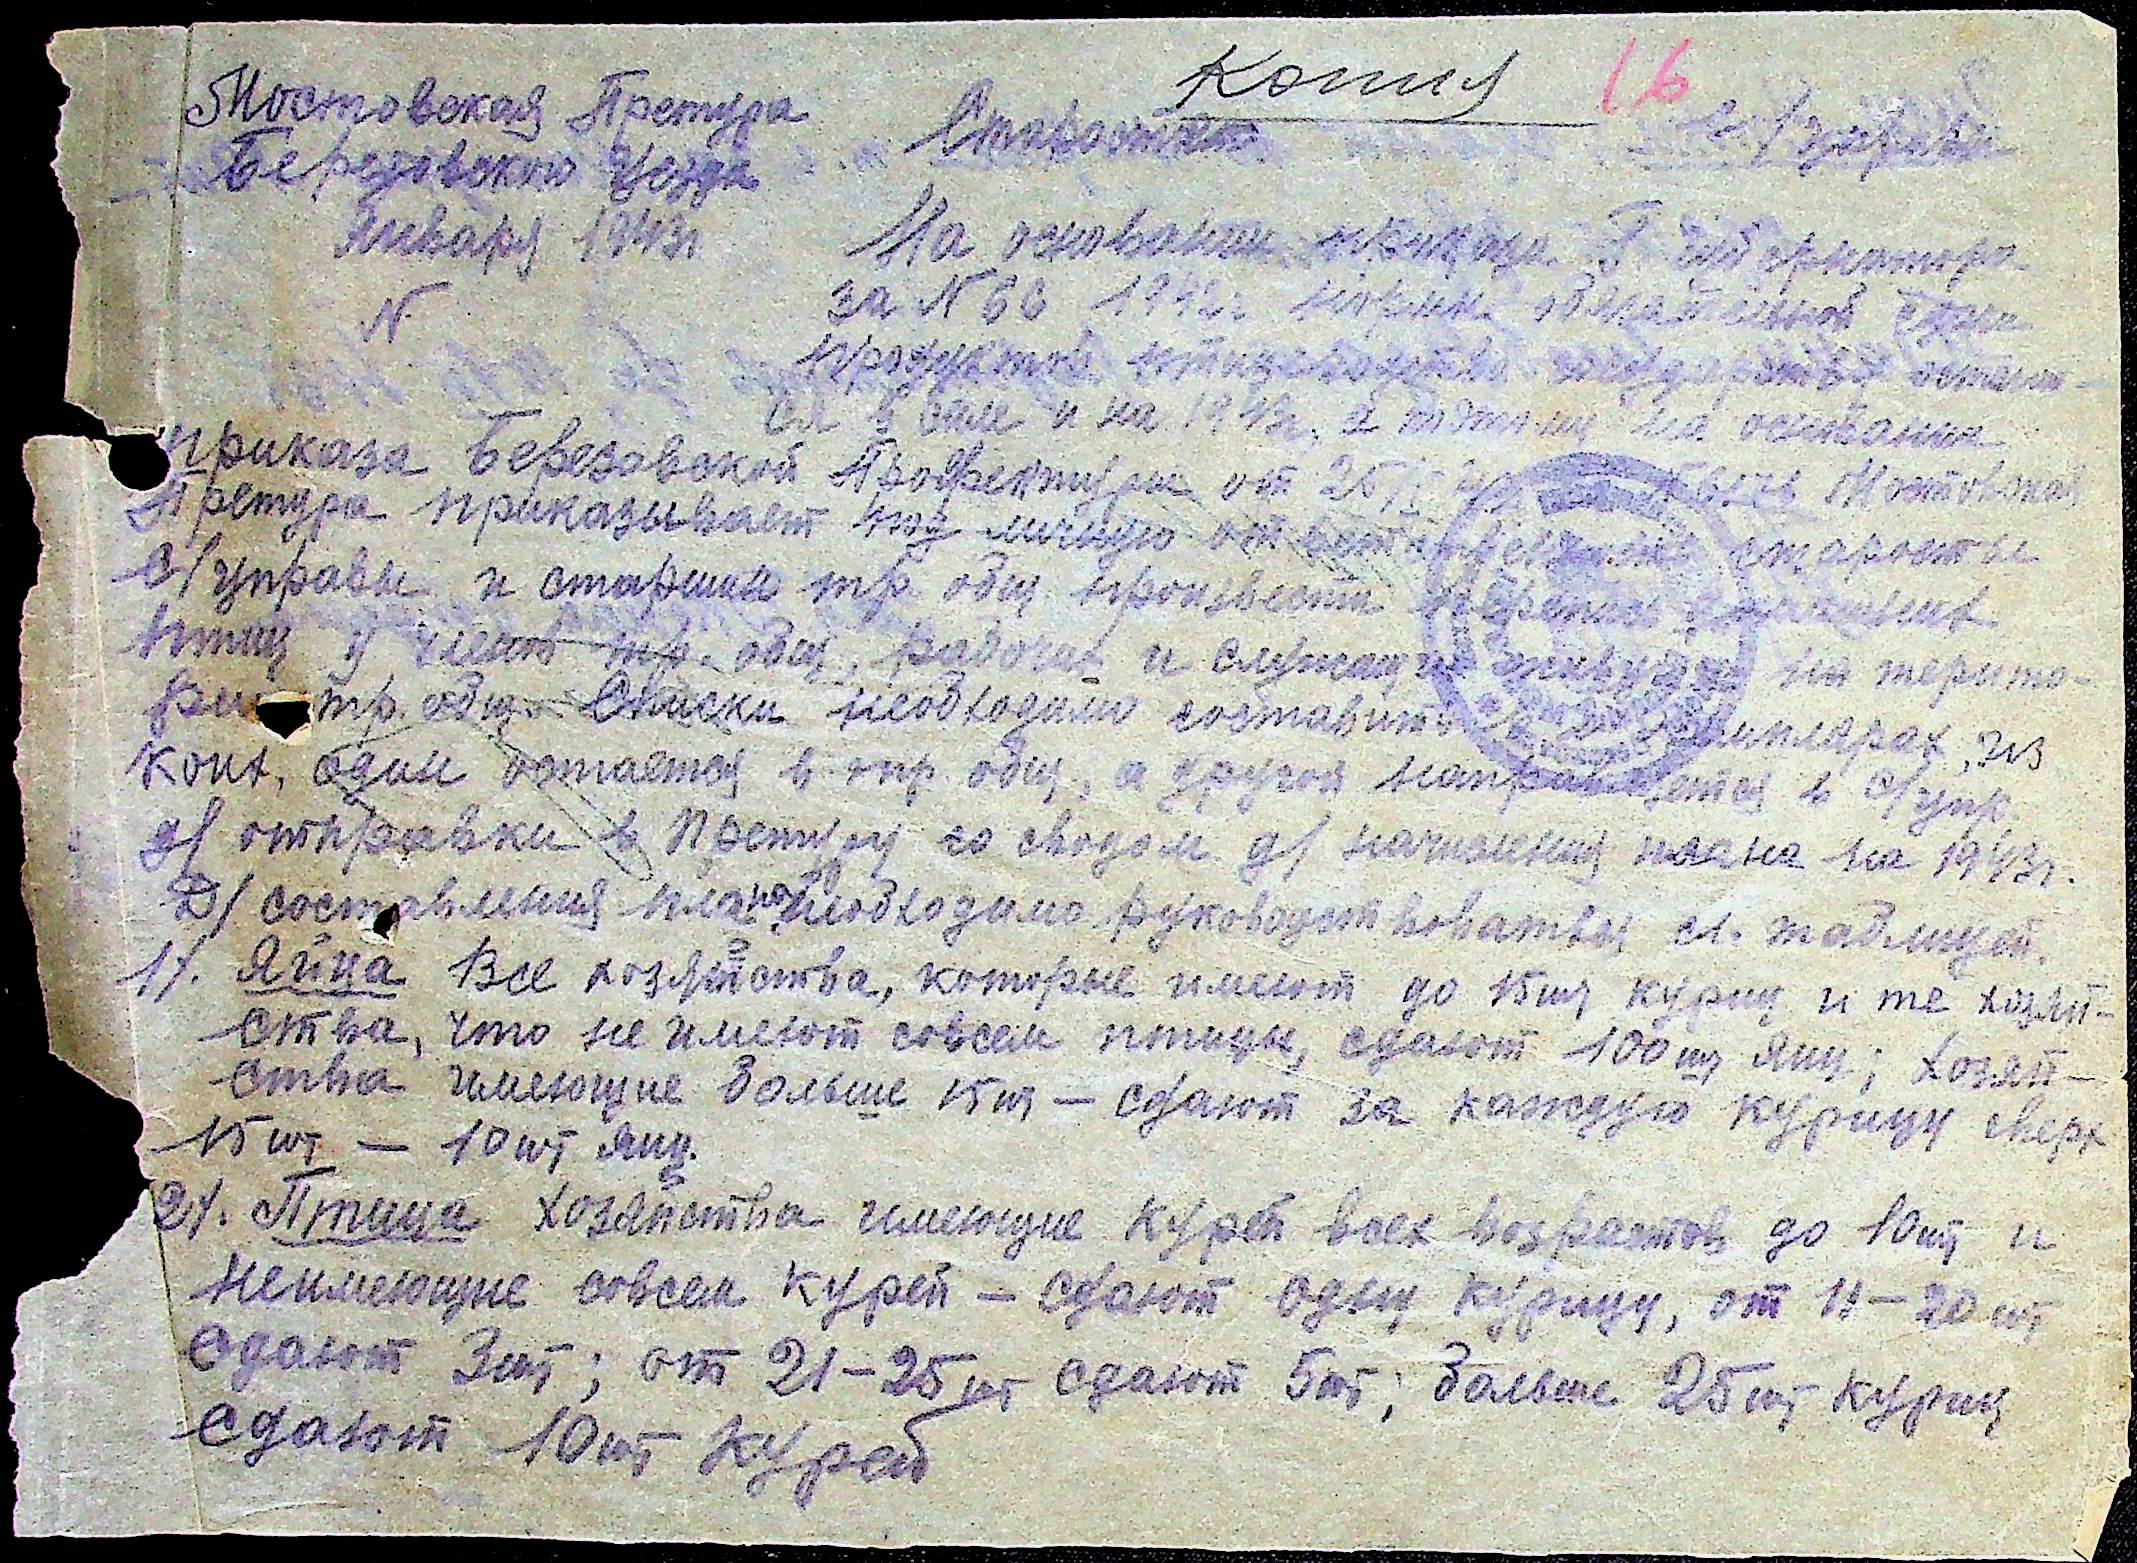 Копия 16
Мостовская Претура Старостам с/управы
Березовского Уезда
Января 1943г На основании приказа Губернатора
N за N 66 1942г нормы обязательной сдачи
продуктов птицеводства государству остаются
в силе и на 1943г, а потому на основании
приказа Березовской Профектуры от 25/I Мостовская
Претура приказывает под личную старосты
с/управы и старшин тр. общ произвести
птиц у член тр. общ, рабочих и служащих живущих на терито-
рии тр. общ. Списки необходимо составить в экземплярах, из
коих, один остается в тр. общ, а другой направляется в с/упр.
д/ отправки в Претуру со сводом д/ начисления плана на 1943г.
Д/ составления плана необходимо руководствоваться сл. таблицей.
1/. Яйца Все хозяйства, которые имеют до 15шт куриц и те хозяй-
ства, что не имеют совсем птицы, сдают 100шт яиц; хозяй-
ства имеющие больше 15шт – сдают за каждую курицу сверх
15шт – 10шт яиц.
2/. Птица хозяйства имеющие курей всех возрастов до 10шт и
неимеющие совсем курей – сдают одну курицу, от 11–20шт
сдают 3шт; от 21–25шт сдают 5шт; больше 25шт куриц
сдают 10шт курей